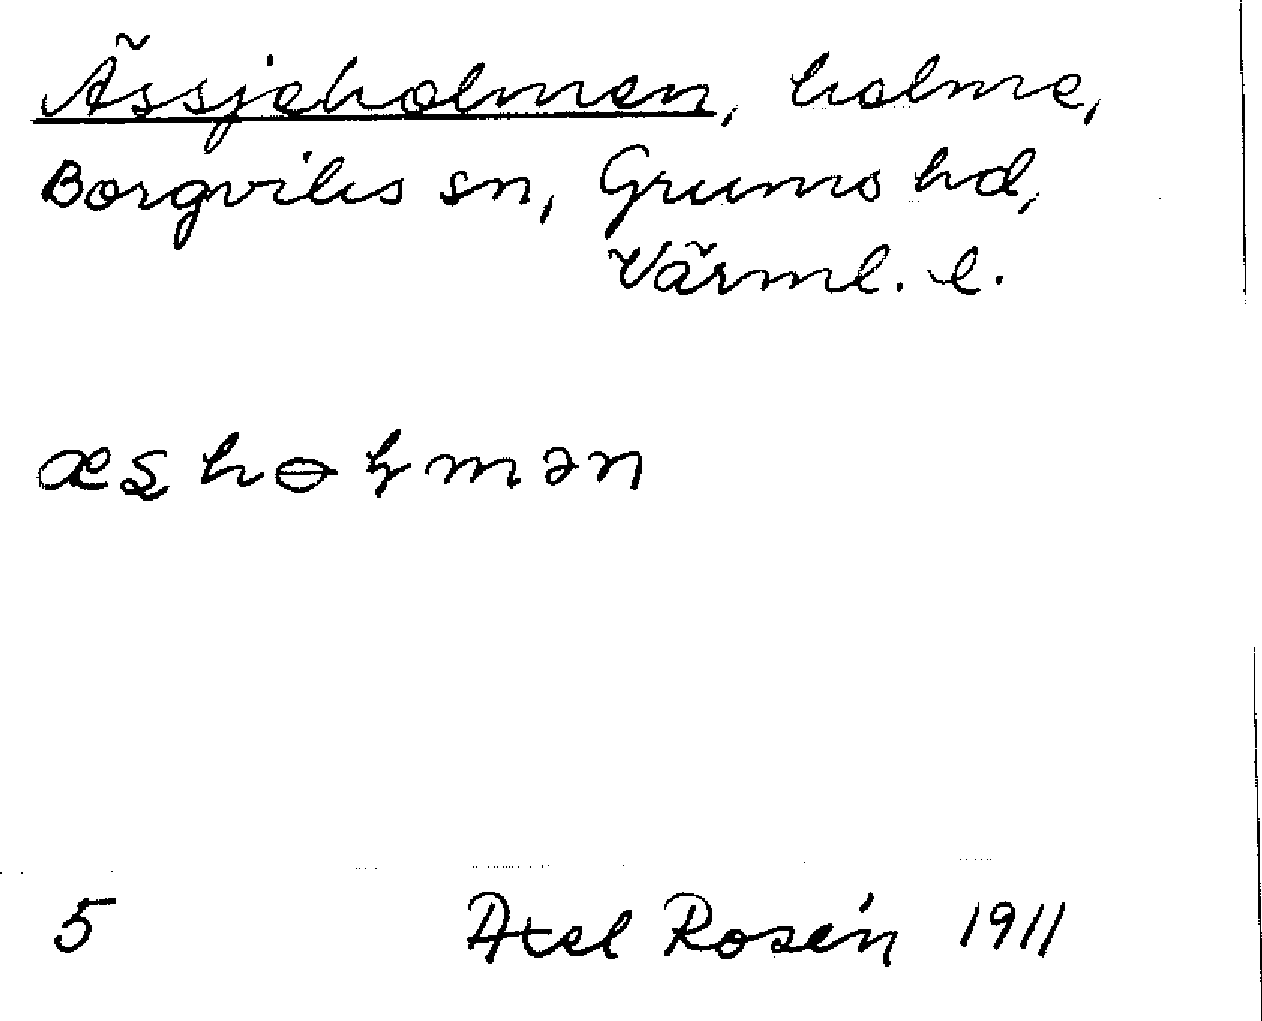 Ässjeholmen, holme,
Borgviks sn, Grums hd,
Värml. l.
æʂhɵɽmən
5 Axel Rosén 1911